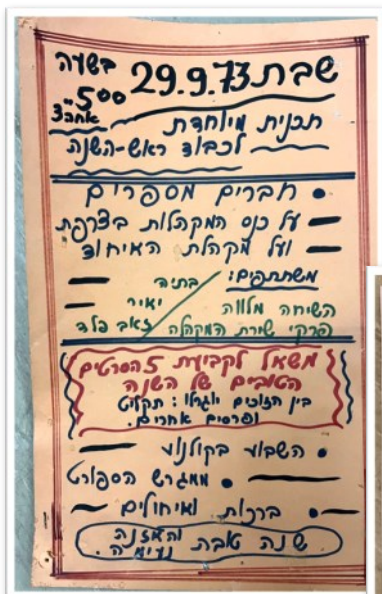 שבת 29.9.73 בשעה
5⁰⁰ אחה"צ
תכנית מיוחדת
לכבוד ראש-השנה
• חברים מספרים
על כנס המקהלות בצרפת
ועל מקהלת האיחוד
משתתפים: בתיה
יאיר
זאב פלד
השיחה מלווה
פרקי שירת המקהלה
משאל לקביעת 5 הסרטים
הטובים של השנה
בין הזוכים יוגרלו: תקליט
ופרסים אחרים.
• השבוע בקולנוע
• ממגרש הספורט
• ברכות ואיחולים
שנה טובה והאזנה
נעימה.